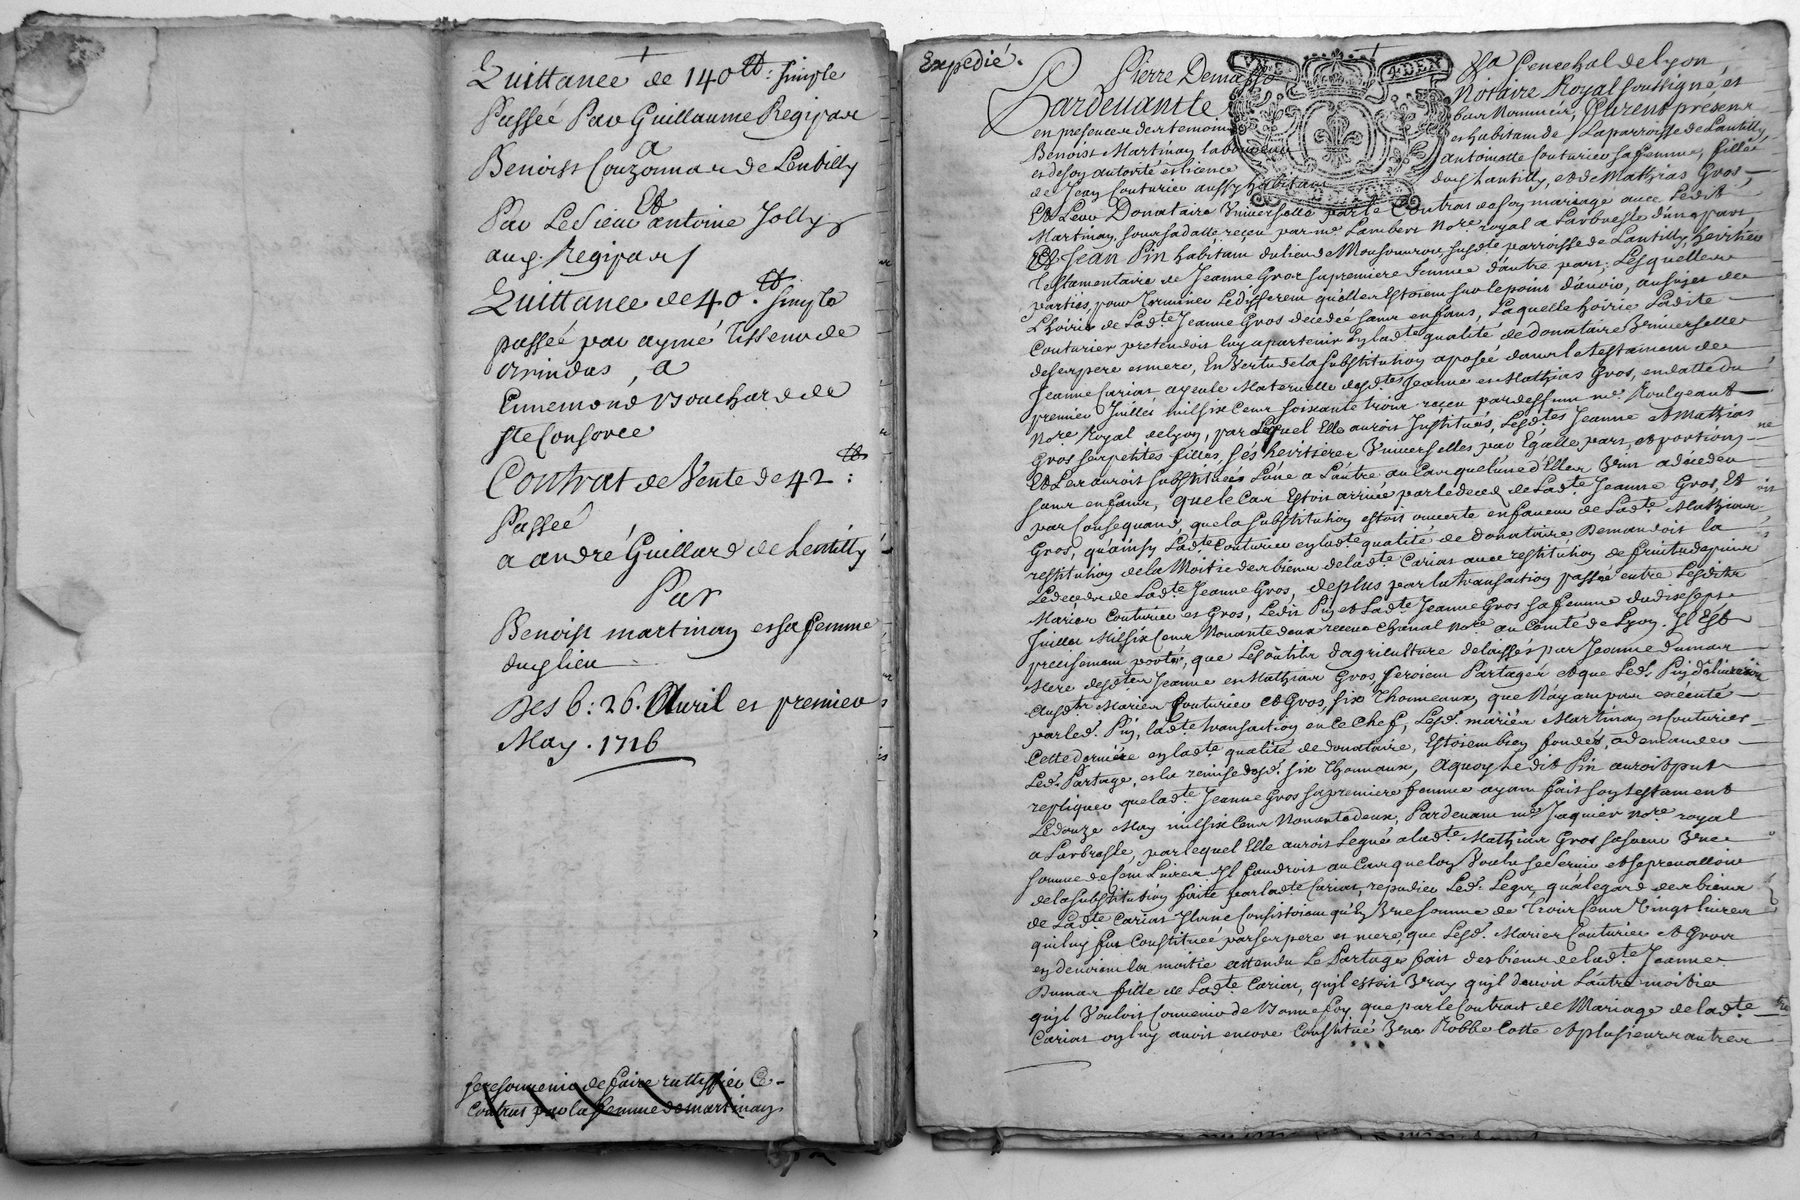 Quittance de 140 ₶: simple
Passée Par Guillaume Regipas
a
Benoist Couzonnar de Lentilly
Et
Par Le Sieur antoine Jolly
aud. Regipas /
Quittance de 40 ₶. simple
passée par aymé Tisseur de
, a
Ennemond Bouchard de
ste Consorce
Contrat de Vente de 42 ₶:
Passée
a andré Guillard de Lentilly
Par
Benoist martinay et sa femme
dud lieu
Des 6: 26. Avril et premier
May. 1716
se resouvenir de faire rattiffier Ce
Contrat par la femme de martinay
Expedié.
Pardevant Le
Pierre Demasso
La Senechal de Lyon
Notaire Royal soussigné, et
en presence des temoins
bas Nommés, furent presens
Benoist Martinay laboureur
et habitant de La parroisse de Lantilly,
et de son autorité et licence
antoinette Couturier sa femme, fille
de Jean Couturier aussy habitant
dud Lantilly, et de Mathias Gros,
Et Leur Donataire Universelle par le Contrat de son mariage avec Ledit
Martinay, sous sa datte reçeu par me. Lambert Nore. royal a Larbresle d'une part,
Et Jean Pin habitant du lieu de susdte parroisse de Lantilly, heritier
Testamentaire de Jeanne Gros sa premiere femme d'autre part; Lesquelles
parties, pour Terminer Le differem qu'elles Estoient sur le point d'avoir, au sujet de
L'hoirie de Ladte. Jeanne Gros decedée sans enfans, Laquelle hoirie Ladite
Couturier pretendoit luy apartenir En ladte qualité de donataire Universelle
de ses pere et mere, En Vertu de la Substitution aposée dans le testament de
Jeanne Carias ayeule Maternelle desdtes Jeanne et Mathias Gros, en datte du
premier Juillet mil six Cens soixante trois reçeu par deffunt me. Roulgeant
Nore. Royal de Lyon, par Lequel Elle auroit Institués, Lesdtes Jeanne et Mathias
Gros ses petites filles, ses heritieres Universelles par Egalle part, et portions
Et Les auroit substituées L'une a L'autre au Cas que l'une d'Elles Vint a deceder
sans enfans, que le Cas Estoit arrivé par le deces de Ladte Jeanne Gros, Et
par Consequand, que la substitution estoit ouverte en faveur de Ladte Mathias
Gros, qu'ainsy Ladte Couturier en ladte qualité de Donataire, Demandoit la
restitution de la Moitié des biens de ladte Carias avec restitution de fruits depuis
Le deces de Ladte. Jeanne Gros, de plus par la transaction passée entre Lesdits
Mariés Couturier et Gros, Ledit Pin et Ladte. Jeanne Gros sa femme du dixsept
Juillet Mil six Cens Nonante deux receue Chanal Nore. au Comté de Lyon. Il Est
precisement porté, que Les outils d'agriculture delaissés par Jeanne Dumas
Mere desdtes Jeanne et Mathias Gros seroient Partagés et que Led. Pin delivreroit
ausdts Mariés Couturier et Gros, six Thonneaux, que N'ayant pas executé
par led. Pin, ladte transaction en Ce Chef, Lesd. mariés Martinay, et Couturier
Cette derniere en ladte qualité de donataire, Estoient bien fondés, a demander
Led. Partage, et la remise desd. six Thonneaux, a quoy Ledit Pin auroit put
repliquer que ladte. Jeanne Gros sa premiere femme ayant fait son testament
Le douze May mil six Cens Nonante deux, Pardevant me. Jaquier Nore. royal
a Larbresle, par lequel Elle auroit Legué a ladte. Mathias Gros sa soeur Une
somme de Cent Livres Il faudroit au Cas que lon Voulu se servir et se prevalloir
de la substitution faite par ladte Carias, repudier Led. Legs, qu'a legard des biens
de Ladte. Carias Ils ne Consistoient qu'En Une somme de Trois Cens Vingt livres
qui luy fut Constituée par ses pere et mere, que Lesd. Mariés Couturier et Gros
en devoient la moitié attendu Le Partage fait des biens de ladte. Jeanne
Dumas fille de Ladte. Carias, qu'il estoit Vray qu'il devoit L'autre moitié
qu'il Vouloit Convenir de Bonne foy, que par le Contract de Mariage de ladte
Carias on luy avoit encore Constitué Une Robbe Cotte et plusieurs autres